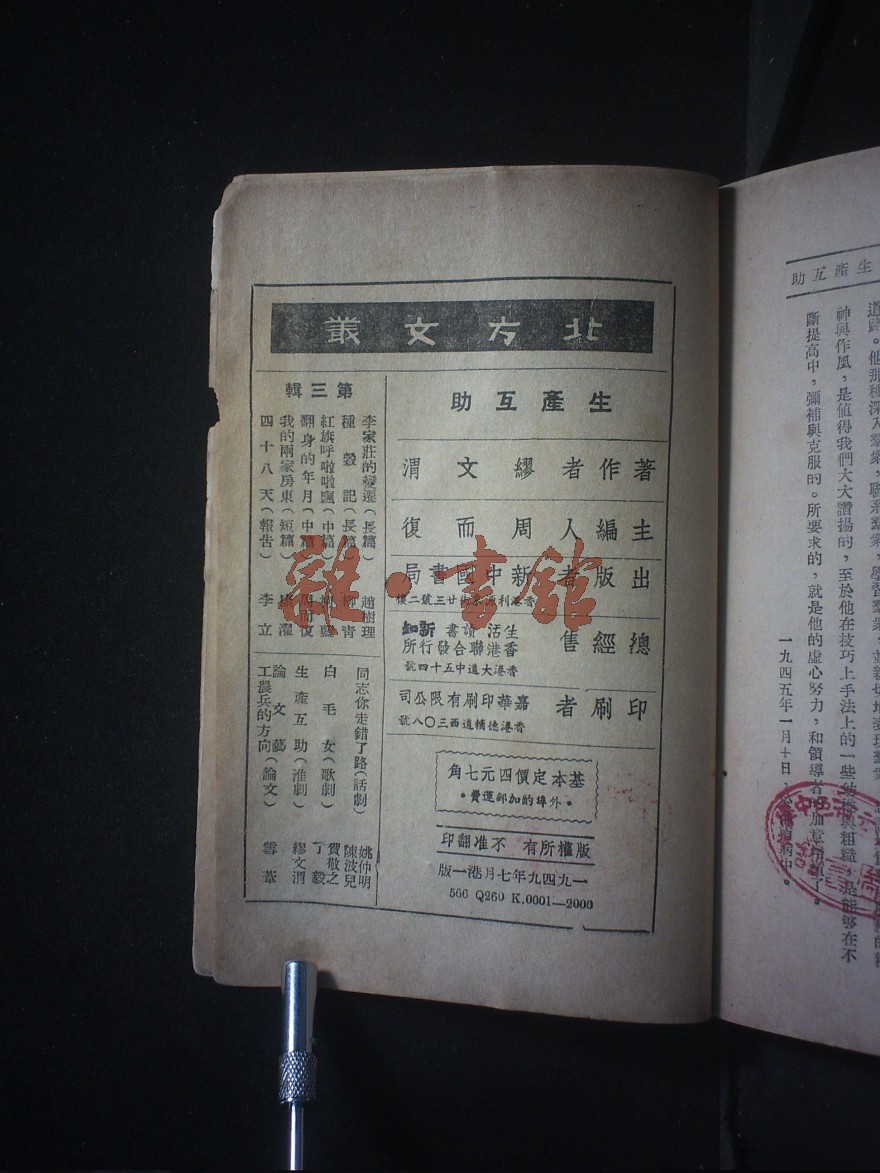 北方文叢
生產互助
著作者 繆文渭
主編人 周而復
出版者 新中國書局
總經售 生活 讀書 新知
香港聯合發行所
香港大道中五十四號
印刷者 嘉華印刷有限公司
香港德輔道西三〇八號
基本定價四元七角
•外埠酌加郵運費•
版權所有 不准翻印
一九四九年七月港一版
566 Q260 K.0001—2000
第三輯
李家莊的變遷(長篇) 趙樹理
種穀記(長篇) 柳青
紅旗呼啦啦飄(中篇)
翻身的年月(中篇) 周而復
我的兩家房東(短篇)
四十八天(報告) 李立
同志你走錯了路(話劇) 姚仲明 陳波兒
白毛女(歌劇) 賀敬之 丁毅
生產互助(淮劇) 繆文渭
論文藝
工農兵的方向(論文) 雪葦
生產互助
神與作風,是值得我們大大讚揚的,至於他在技巧上手法上的一些
斷提高中,彌補與克服的。所要求的,就是他的虛心努力,和領導者
一九四五年一月十日
雜·書館